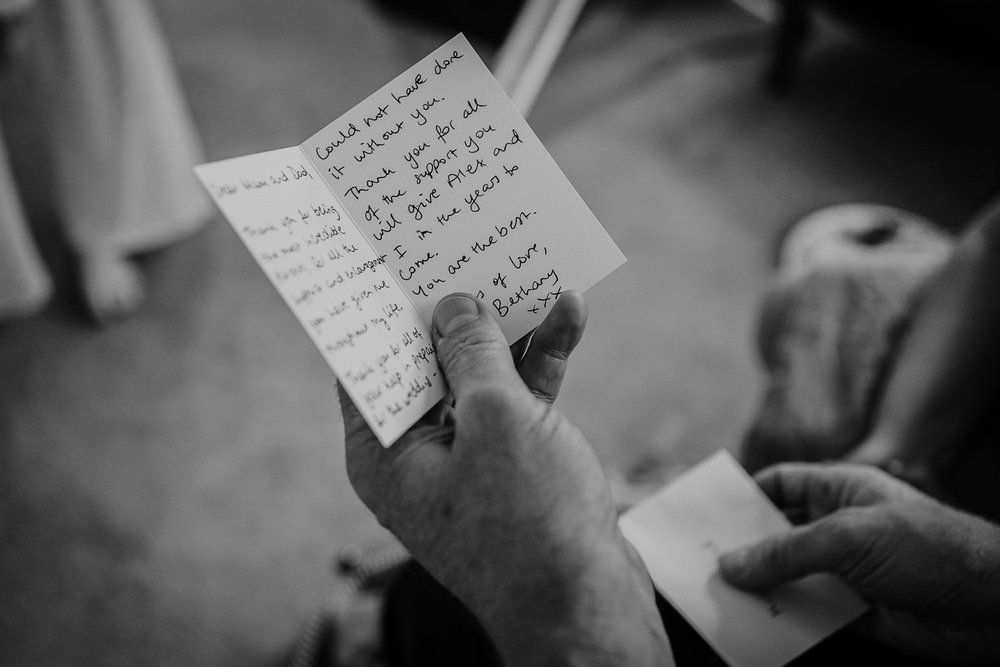 Dear Mum and Dad,
Thank you for being
the most incredible
parents, for all the
support and
you have given me
throughout my life.
Thank you for all of
your help in
for the wedding -
Could not have done
it without you.
Thank you for all
of the support you
will give Alex and
I in the years to
come.
You are the best.
of love,
Bethany
xxx